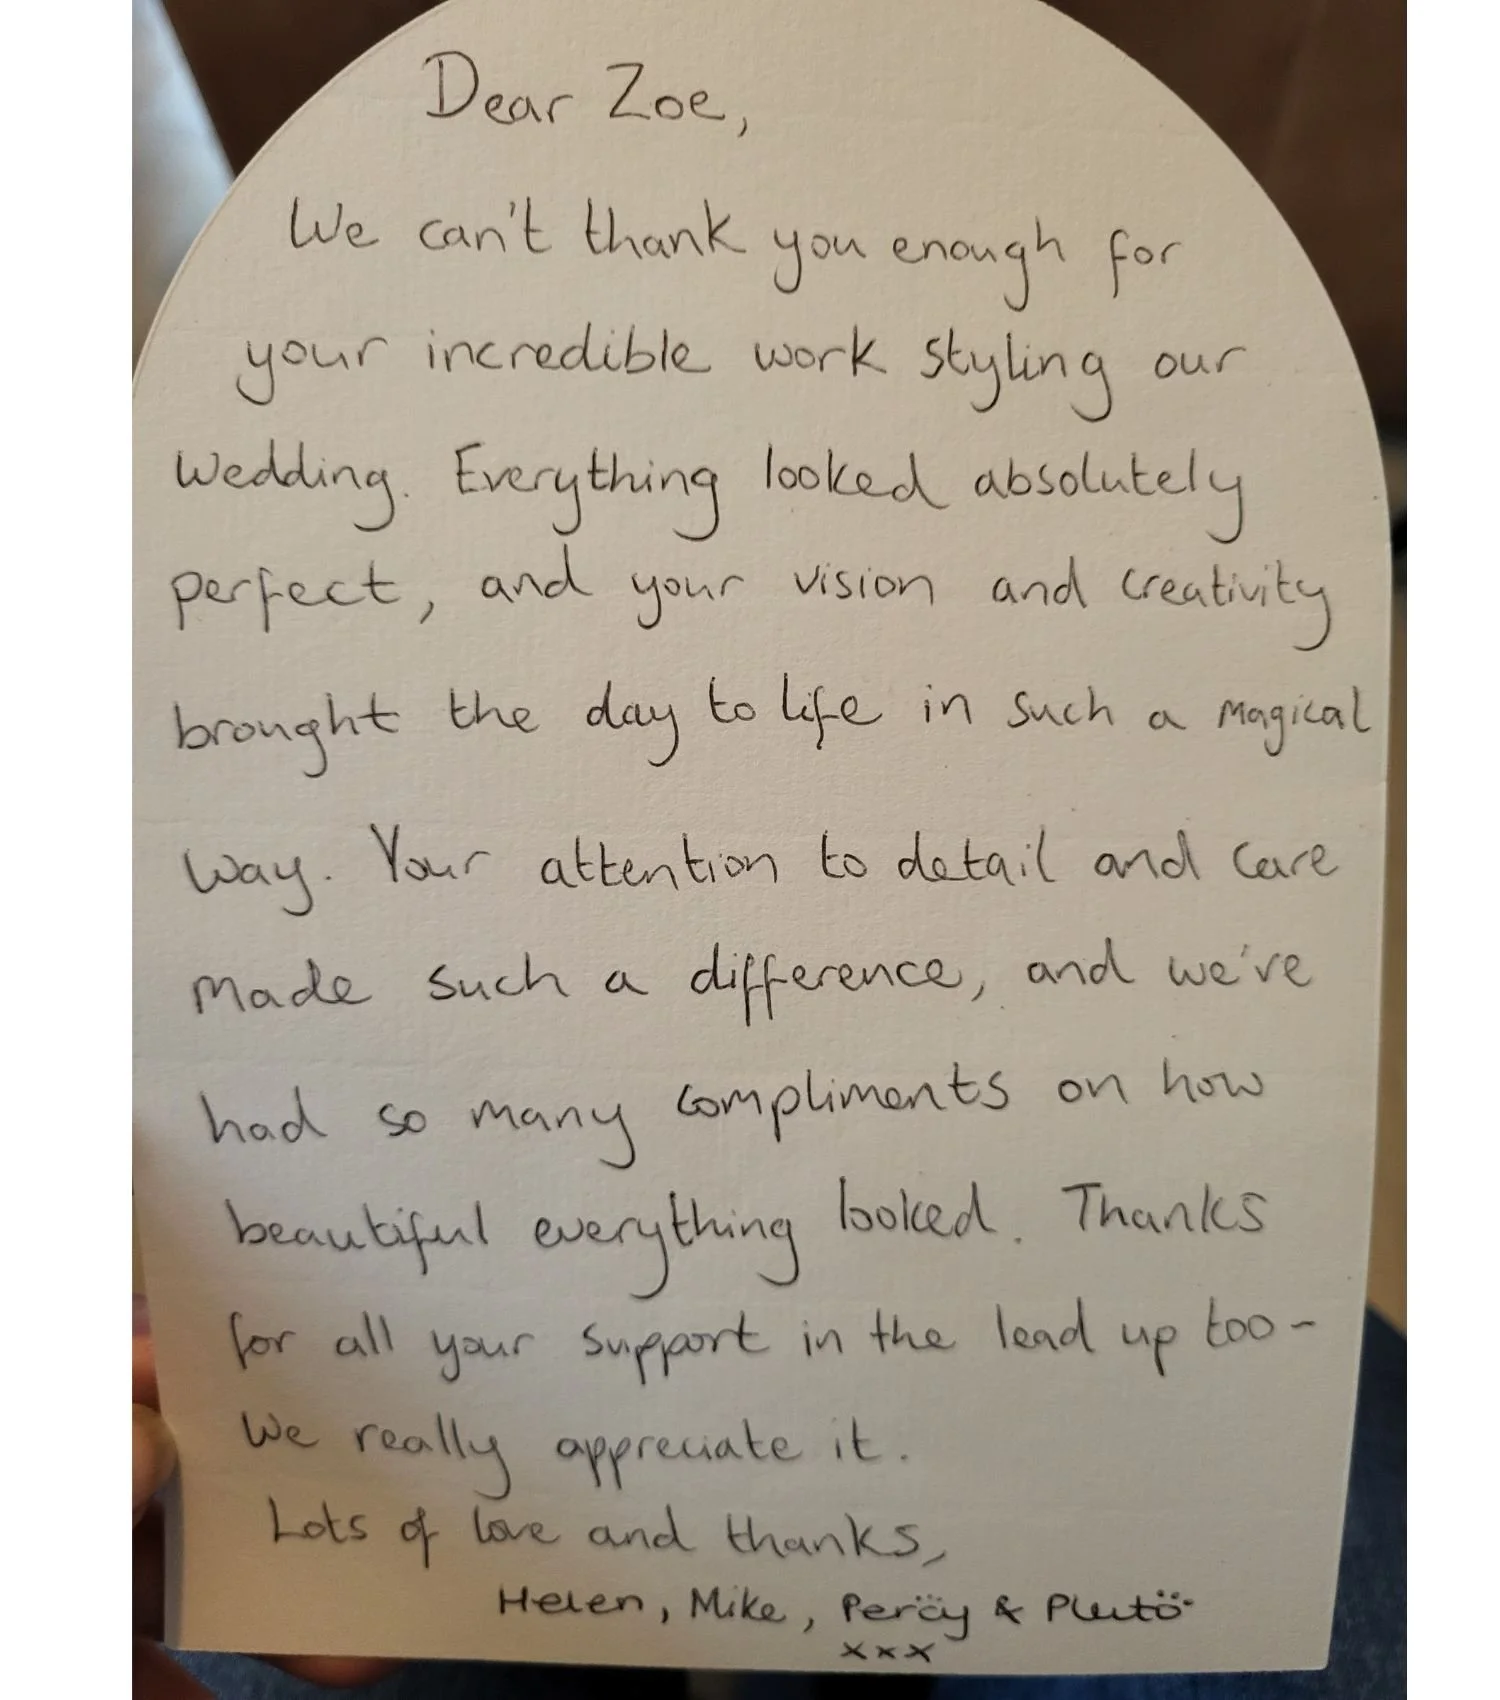 Dear Zoe,
We can't thank you enough for
your incredible work styling our
wedding. Everything looked absolutely
perfect, and your vision and creativity
brought the day to life in such a magical
way. Your attention to detail and care
made such a difference, and we've
had so many compliments on how
beautiful everything looked. Thanks
for all your support in the lead up too-
we really appreciate it.
Lots of love and thanks,
Helen, Mike, Percy & Pluto
xxx